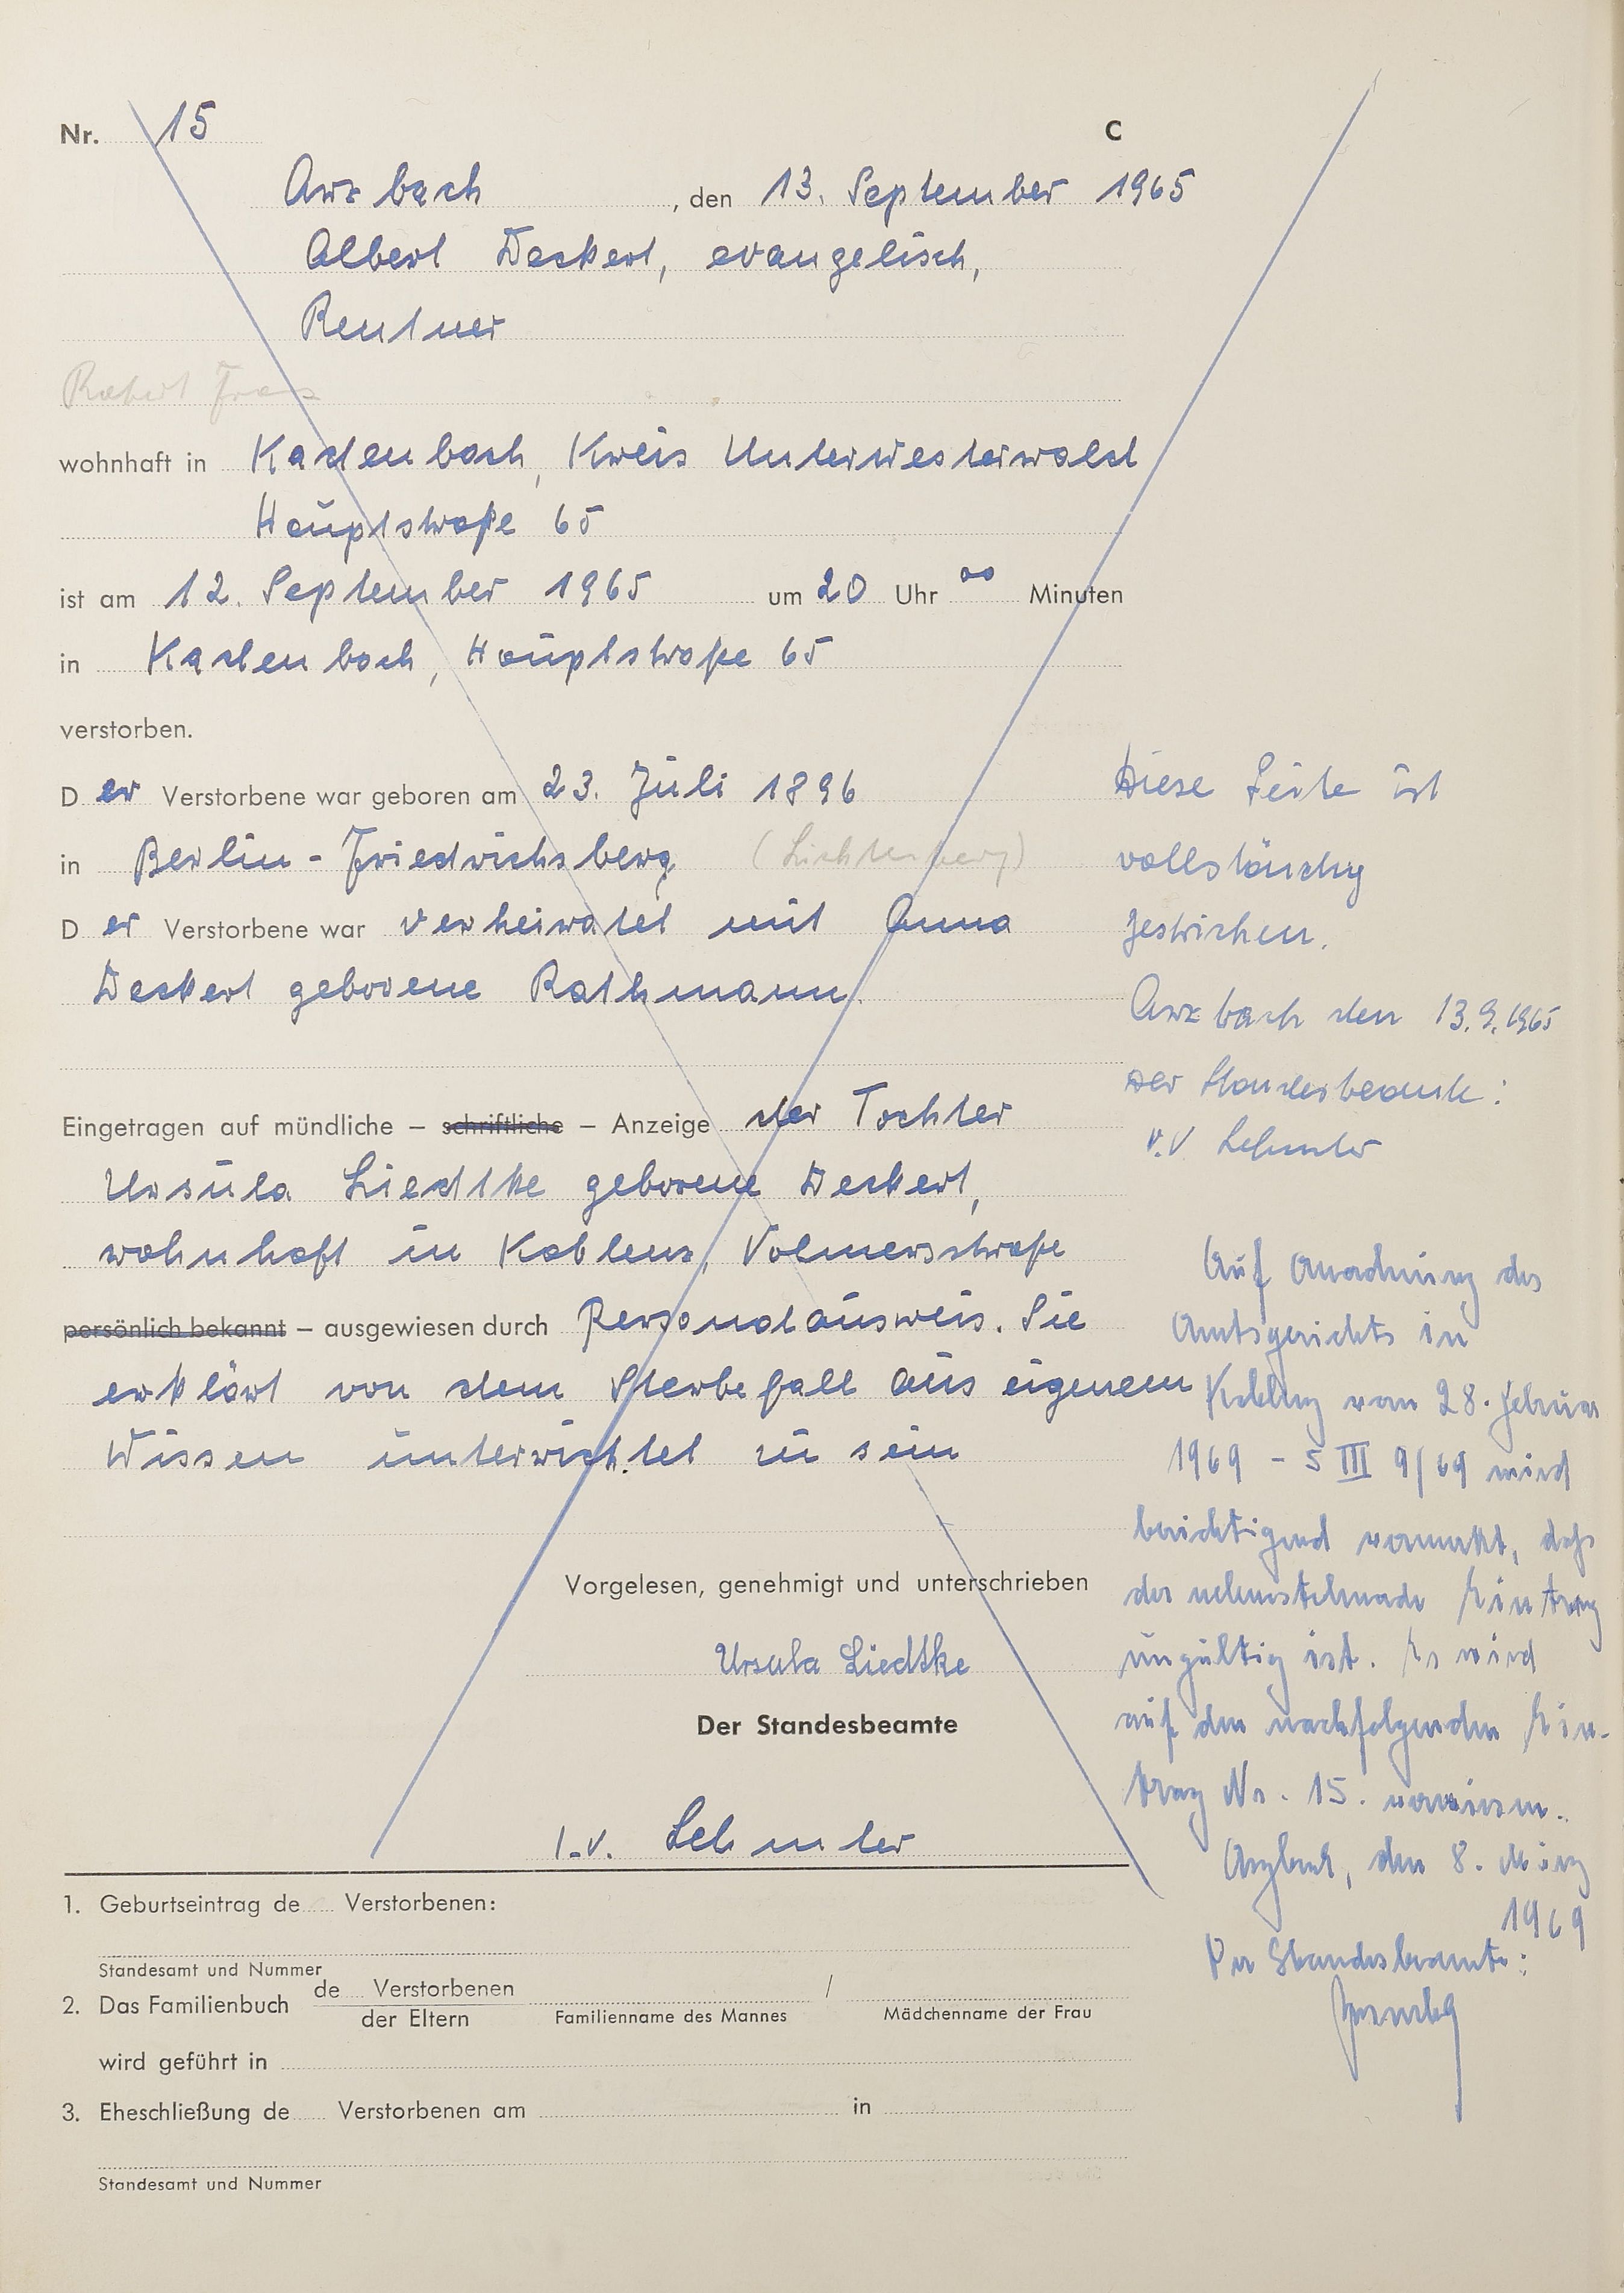 Nr. 15
C
Arzbach, den 13. September 1965
Albert Deckert, evangelisch,
Rentner
wohnhaft in Kadenbach, Kreis Unterwesterwald
Hauptstraße 65
ist am 12. September 1965 um 20 Uhr 00 Minuten
in Kadenbach, Hauptstraße 65
verstorben.
Der Verstorbene war geboren am 23. Juli 1896
in Berlin-Friedrichsberg (Lichtenberg)
Der Verstorbene war verheiratet mit Anna
Deckert geborene Rathmann.
Eingetragen auf mündliche – schriftliche – Anzeige der Tochter
Ursula Liedtke geborene Deckert,
wohnhaft in Koblenz, Volmerstraße
persönlich bekannt – ausgewiesen durch Personalausweis. Sie
erklärt von dem Sterbefall aus eigenem
Wissen unterrichtet zu sein
Vorgelesen, genehmigt und unterschrieben
Ursula Liedtke
Der Standesbeamte
I.V. Lehmler
1. Geburtseintrag de Verstorbenen:
Standesamt und Nummer
2. Das Familienbuch de Verstorbenen / der Eltern
Familienname des Mannes Mädchenname der Frau
wird geführt in
3. Eheschließung de Verstorbenen am in
Standesamt und Nummer
Diese Seite ist
vollständig
gestrichen.
Arzbach den 13.9.1965
Der Standesbeamte:
i.V Lehmler
Auf Anordnung des
Amtsgerichts in
Koblenz vom 28. Februar
1969 - 5 III 9/69 wird
berichtigend vermerkt, daß
der nebenstehende Eintrag
ungültig ist. Es wird
auf den nachfolgenden Ein-
trag Nr. 15. verwiesen.
Arzbach, den 8. März
1969
Der Standesbeamte: